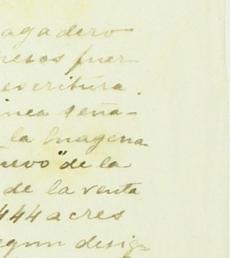 agadero
pesos fuer-
escritura.
inea seña-
la Cuagena
uevo" de la
de la venta
444 acres
egun desig-